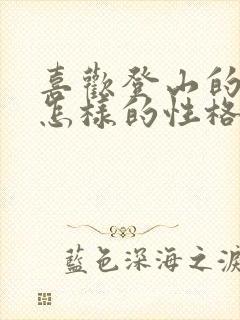 喜歡登山的
怎樣的性格
藍色深海之淚